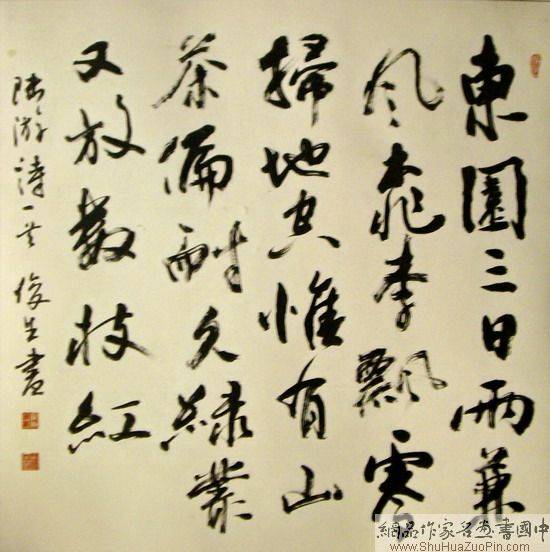 東園三日雨兼
風桃李飄零
掃地空惟有山
茶偏耐久綠叢
又放數枝紅
陸游詩一首 俊生書
中國書畫名家作品網
www.ShuHuaZuoPin.com